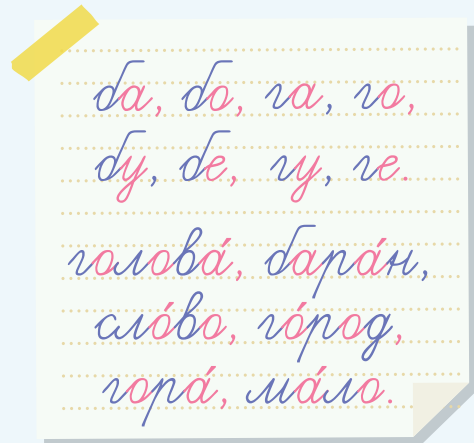 ба, бо, га, го,
бу, бе, гу, ге.
голова́, бара́н,
сло́во, го́род,
гора́, ма́ло.